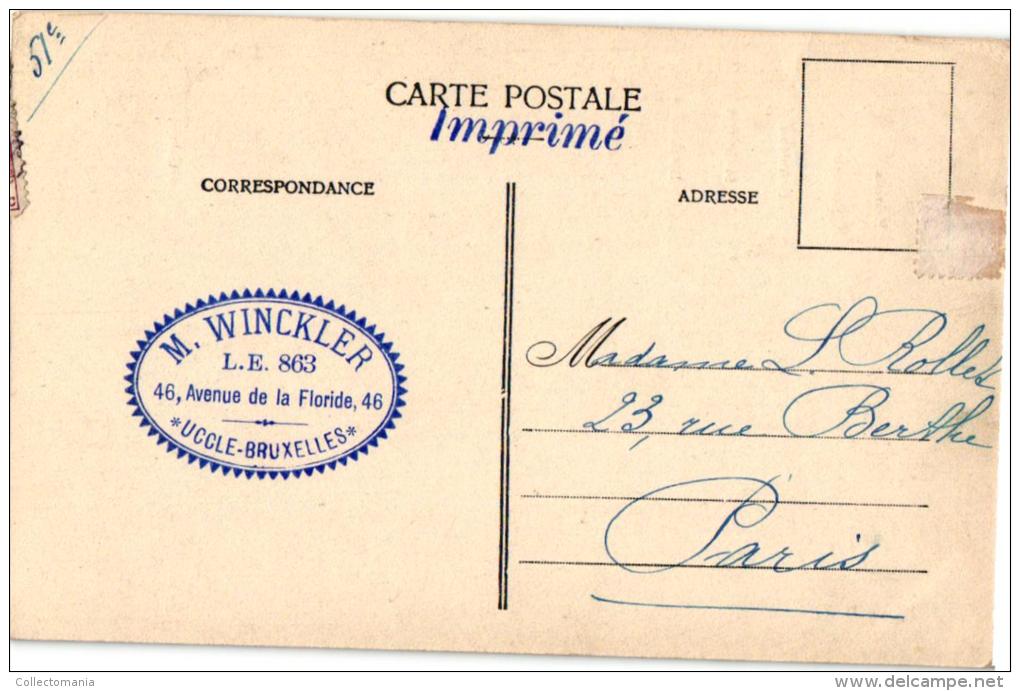 51c.
CARTE POSTALE
Imprimé
CORRESPONDANCE
ADRESSE
M. WINCKLER
L.E. 863
46, Avenue de la Floride, 46
*UCCLE-BRUXELLES*
Madame L. Rollet
23, rue Berthe
Paris
Collectomania
delcampe.net